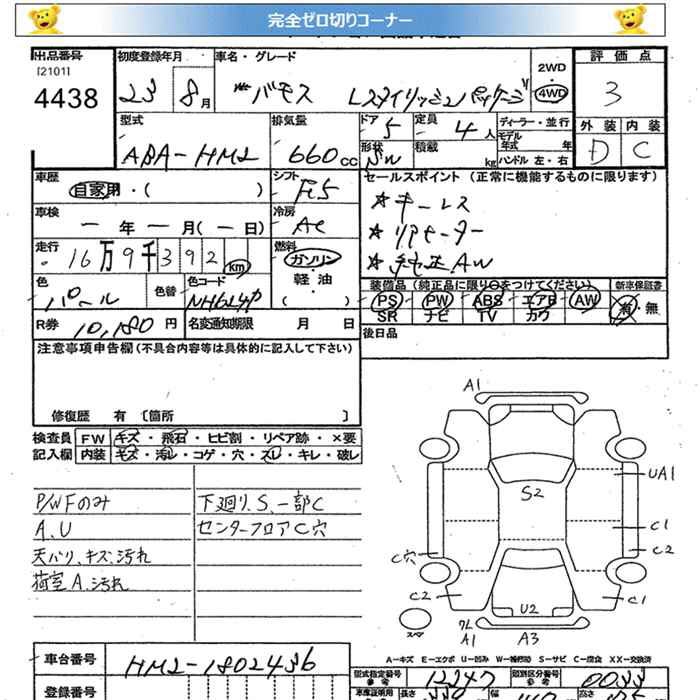 完全ゼロ切りコーナー
出品番号
[2101]
4438
初度登録年月
23 8月
車名・グレード
バモス Lスタイリッシュパッケージ
2WD
4WD
評価点
3
外装 内装
D C
型式
ABA-HM2
排気量
660cc
ドア 5
形状 SW
定員 4人
積載 kg
ディーラー・並行
モデル年式 年
ハンドル 左・右
車歴
自家用・( )
シフト
F5
車検
ー 年 ー 月(ー日)
冷房
AC
走行
16万9千392 km
燃料
ガソリン・軽油・( )
色
パール
色替
色コード
NH624P
R券 10,180円
名変通知期限 月 日
セールスポイント (正常に機能するものに限ります)
★キーレス
★リアヒーター
★純正AW
装備品(純正品に限り○をつけてください)
新車保証書
PS PW ABS エアB AW
SR ナビ TV カワ
有・無
後日品
注意事項申告欄(不具合内容等は具体的に記入して下さい)
修復歴 有〔箇所 〕
検査員記入欄
FW キズ・飛石・ヒビ割・リペア跡・×要
内装 キズ・汚れ・コゲ・穴・スレ・キレ・破レ
P/WFのみ
A.U
天バリ、キズ、汚れ
荷室A.汚れ
下廻り.S.一部C
センターフロアC穴
A1
S2
UA1
C1
C2
C穴
C2
C1
U2
ワレ
A1
A3
スペア
A-キズ E-エクボ U-凹み W-補修跡 S-サビ C-腐食 XX-交換済
車台番号
HM2-1802436
型式指定番号
12247
類別区分番号
0033
登録番号
車庫証明用参考
長さ
幅
高さ